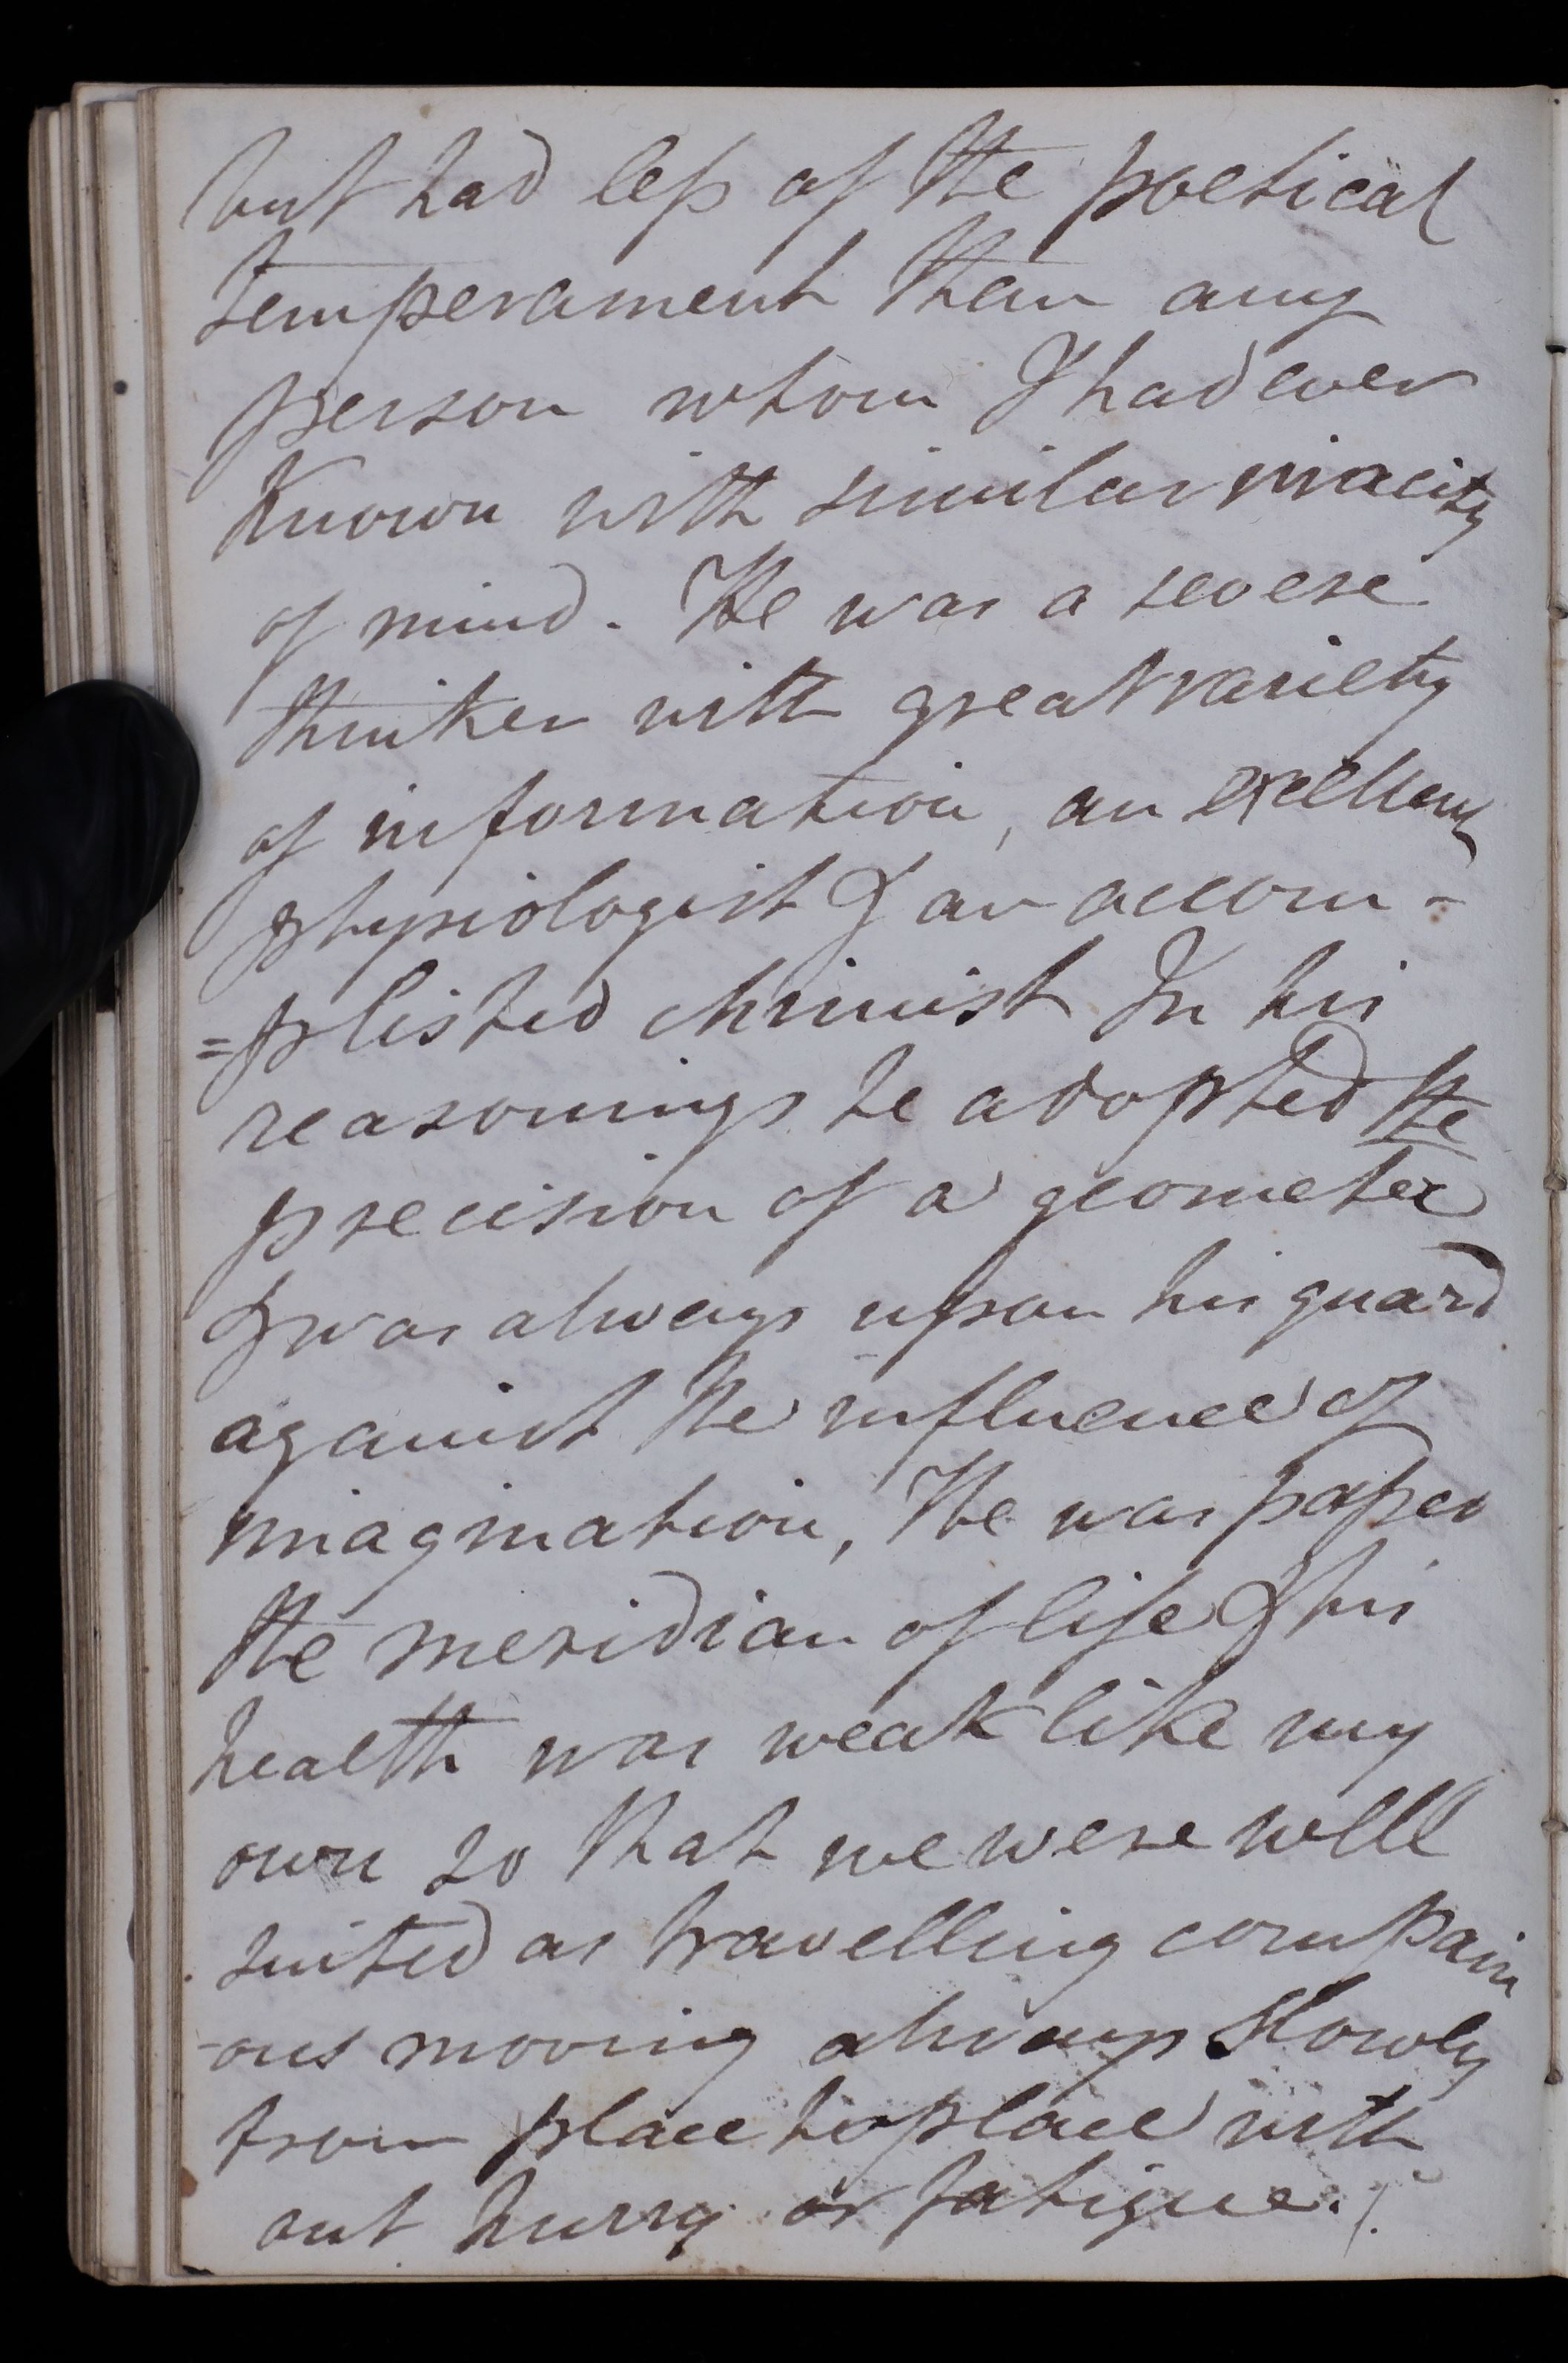 but had less of the poetical
temperament than any
person whom I had ever
known with similar vivacity
of mind. He was a severe
thinker with great variety
of information, an excellent
physiologist & an accom-
=plished chimist In his
reasonings he adopted the
precision of a geometer
& was always upon his guard
against the influence of
imagination, He was passed
the meridian of life & his
health was weak like my
own so that we were well
suited as travelling compain
-ons moving always slowly
from place to place with
out hurry or fatigue.